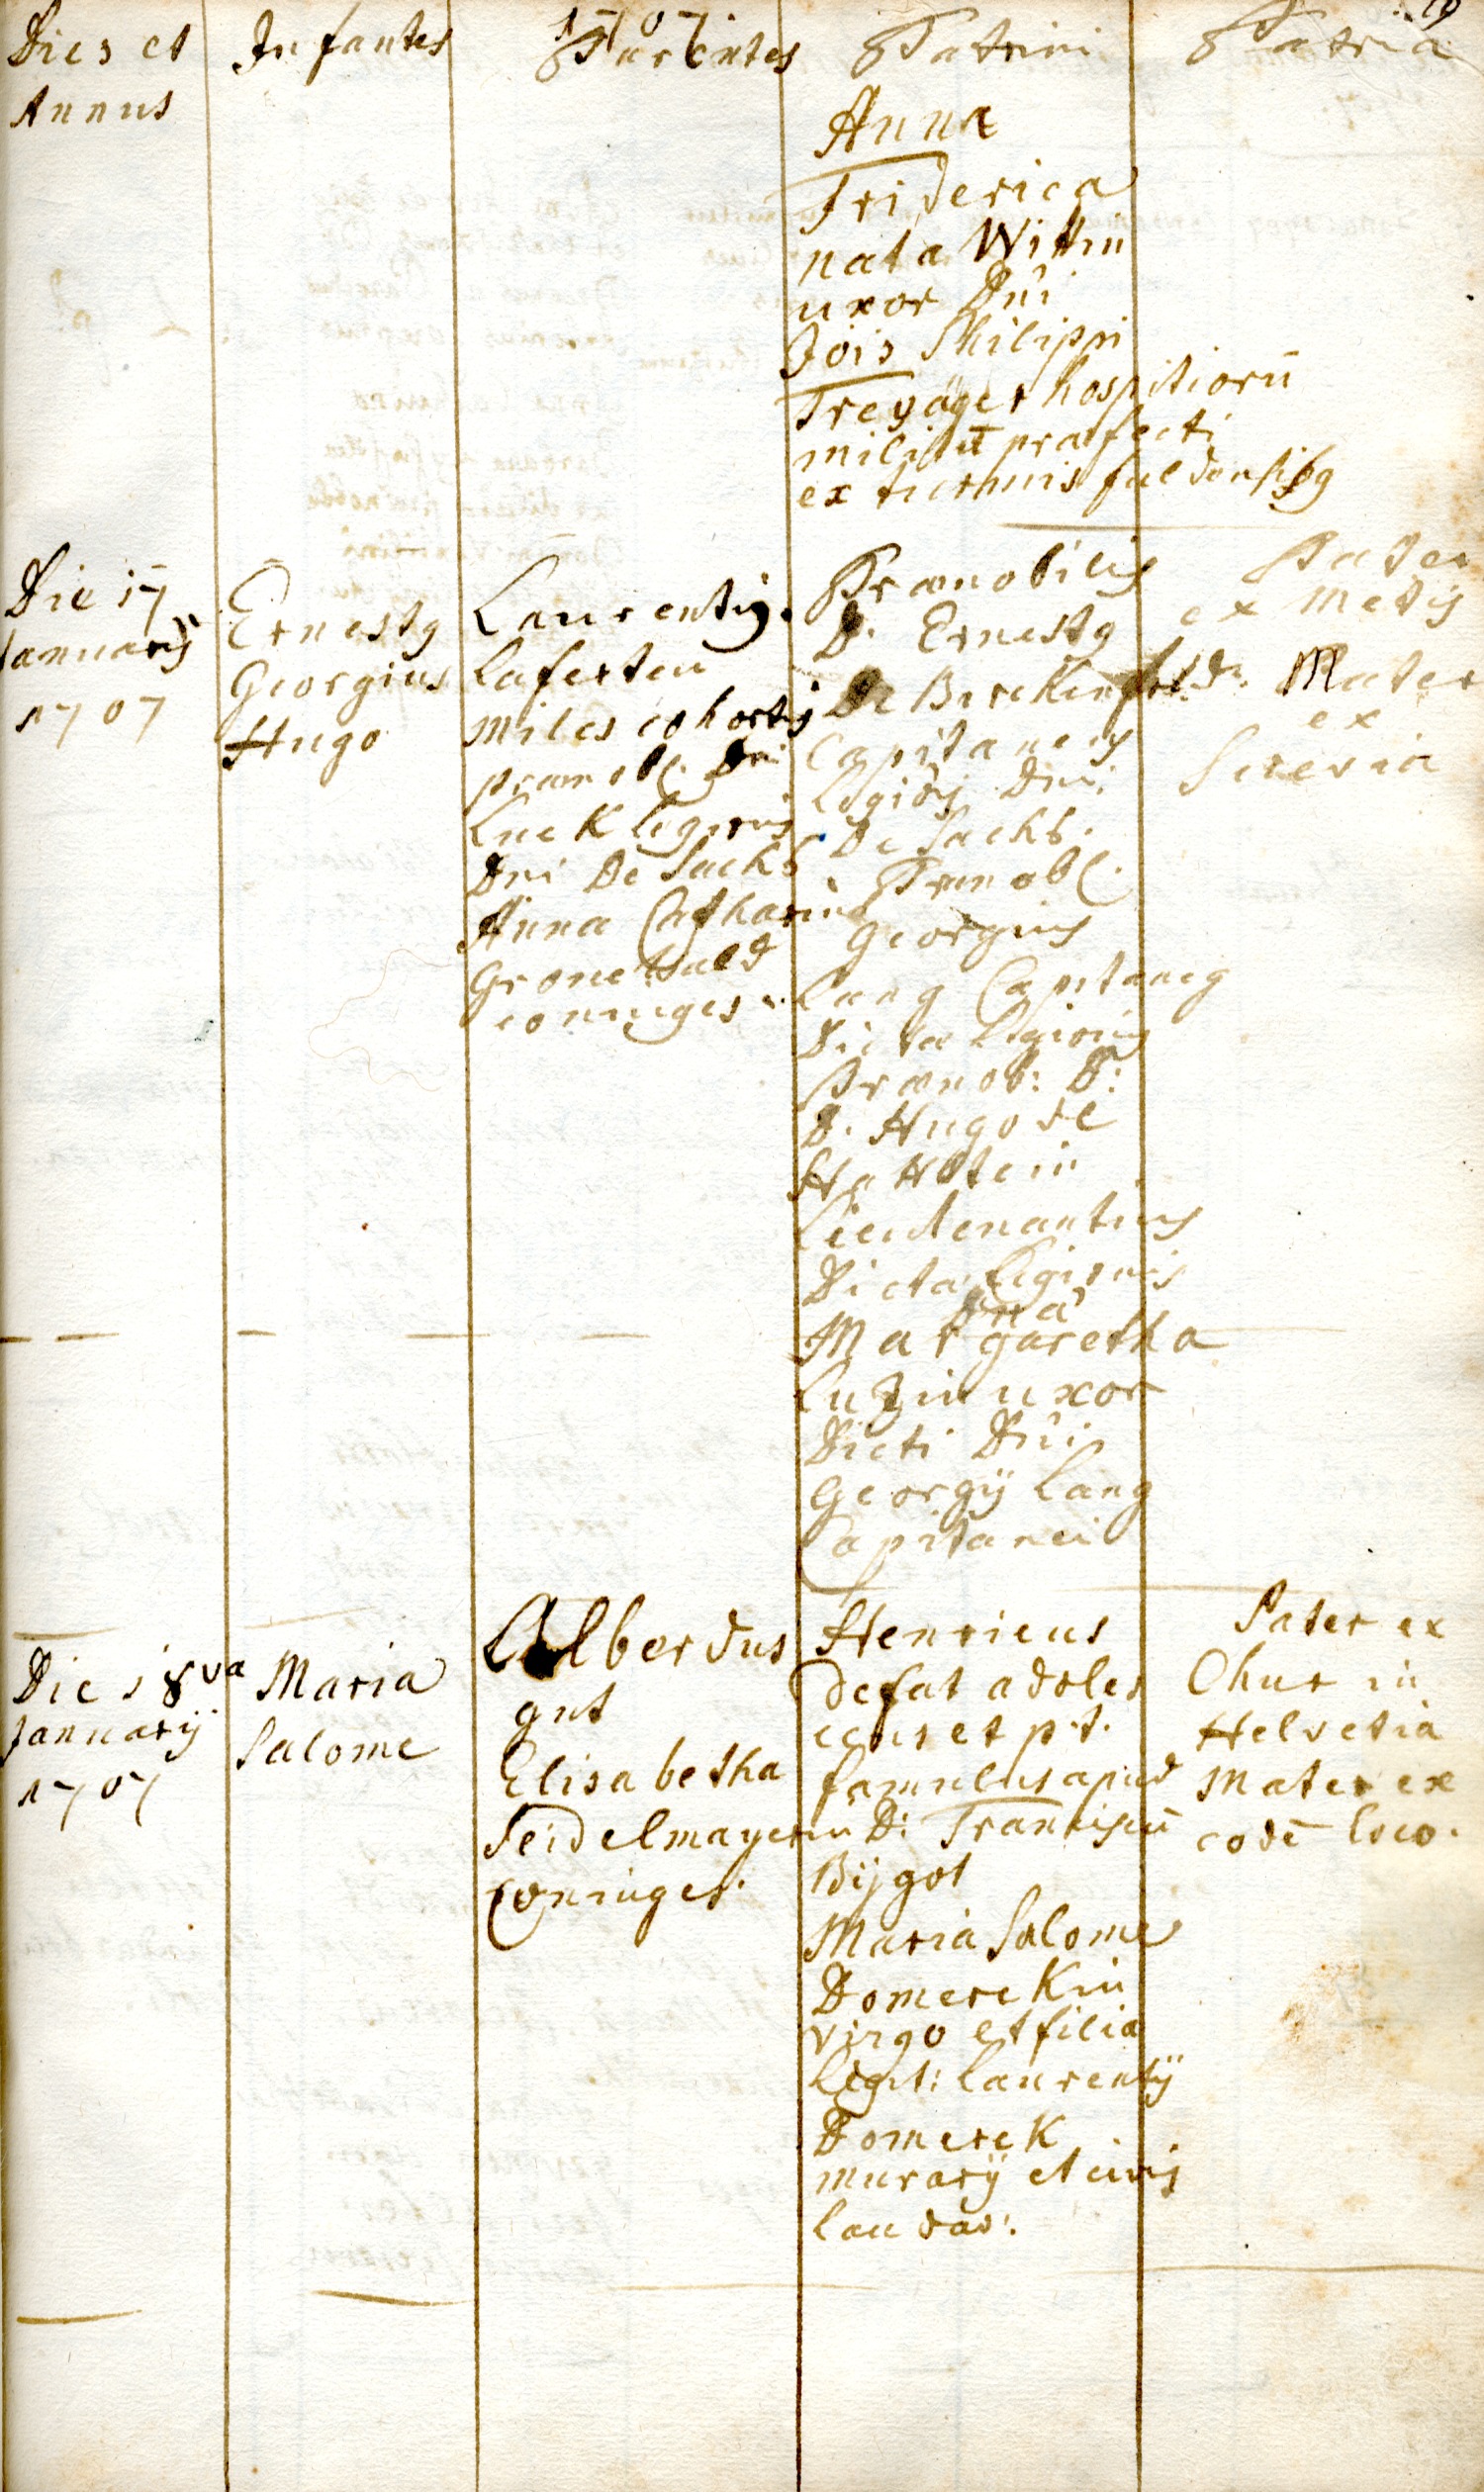 1707
Dies et
Annus
Infantes
Parentes
Patrini
Patria
Anna
Friderica
nata Wittin
uxor Dni
Jois Philippi
Treyäger hospitiorū
militū præfecti
ex thermis fuldensibg
Die 17
January
1707
Ernestg
Georgius
Hugo
Laurentig.
Laferteu
miles cohortis
prænobl. Dni
Luck legionis
Dni De Sachs
Anna Catharina
Gronewald
coniuges.
Prænobilis
D. Ernestg
De Birckenfeld.
Capitaneus
Legiois Dni
De Sachs.
Prænobl.
Georgius
Lang Capitaneg
Dictæ Legionis
Prænob: D:
D. Hugo de
Hattstein
Lieutenantius
Dictæ Legionis
Dna
Margaretha
Luzin uxor
Dicti Dni
Georgij Lang
Capitanei
Pater
ex Metis
Mater
ex
Suevia
Die 18va
Januarij
1707
Maria
Salome
Albertus
gut
Elisabetha
Seidelmayerin
Coniuges.
Henricus
Defat adoles
cens et p.t.
famulus apud
D: Franciscū
Bijgot
Maria Salome
Domereckin
virgo et filia
Legit: Laurentij
Domereck
murarij et civis
landav:.
Pater ex
Chur in
Helvetia
Mater ex
eodē loco.